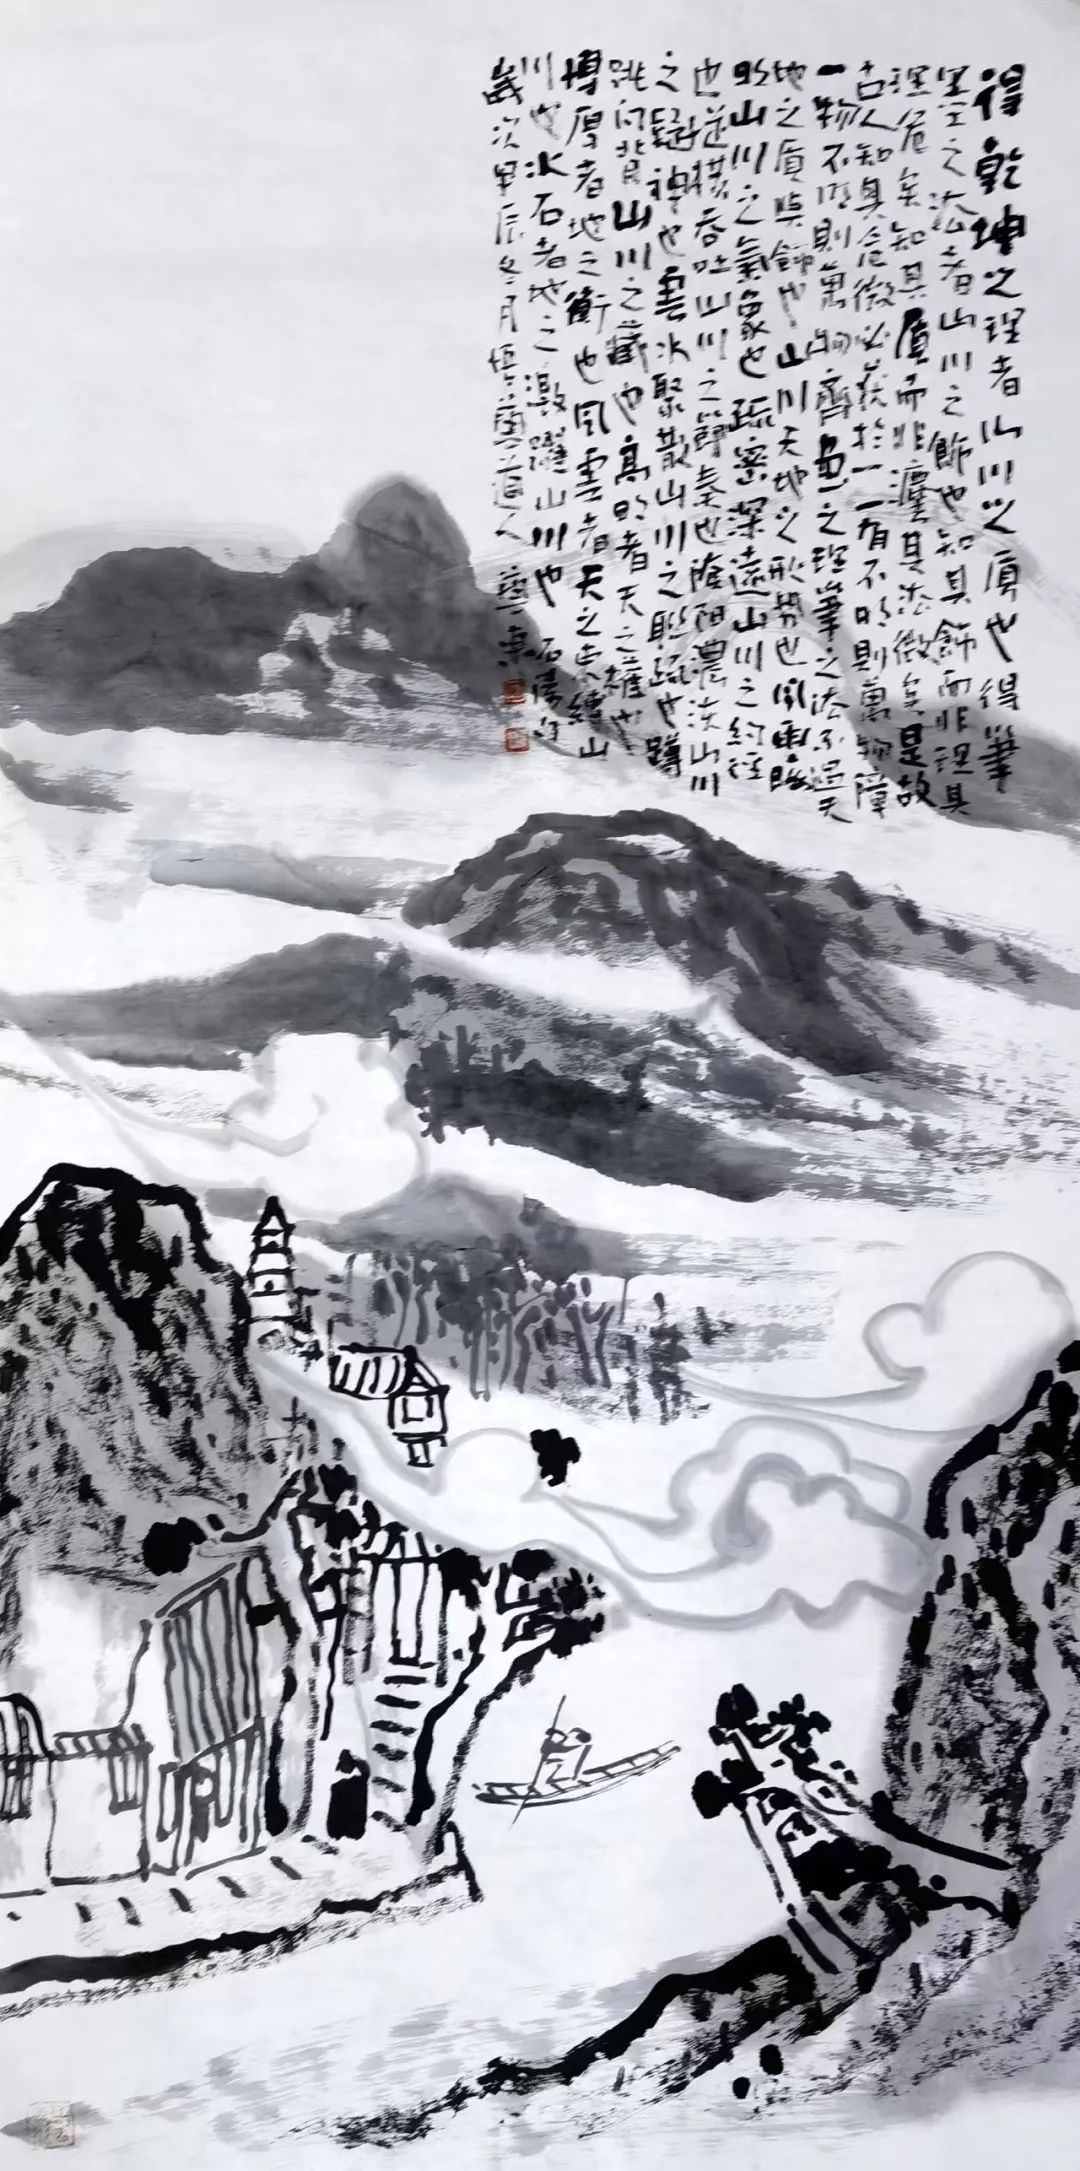 得乾坤之理者山川之質也得筆
墨之法者山川之飾也知其飾而非理其
理危矣知其質而非灋其法微矣是故
古人知其危微必获於一一有不明則萬物障
一物不明則萬物齊畫之理筆之法不過天
地之質與飾也山川天地之形勢也風雨晦
明山川之氣象也疏密深遠山川之約徑
也縱橫吞吐山川之節奏也陰陽濃淡山川
之疑神也雲水聚散山川之聯疏也蹲
跳向背山川之藏也高明者天之權也
博厚者地之衡也風雲者天之束縛山
川也水石者地之激躍山川也 石濤句
歲次甲辰冬月道人